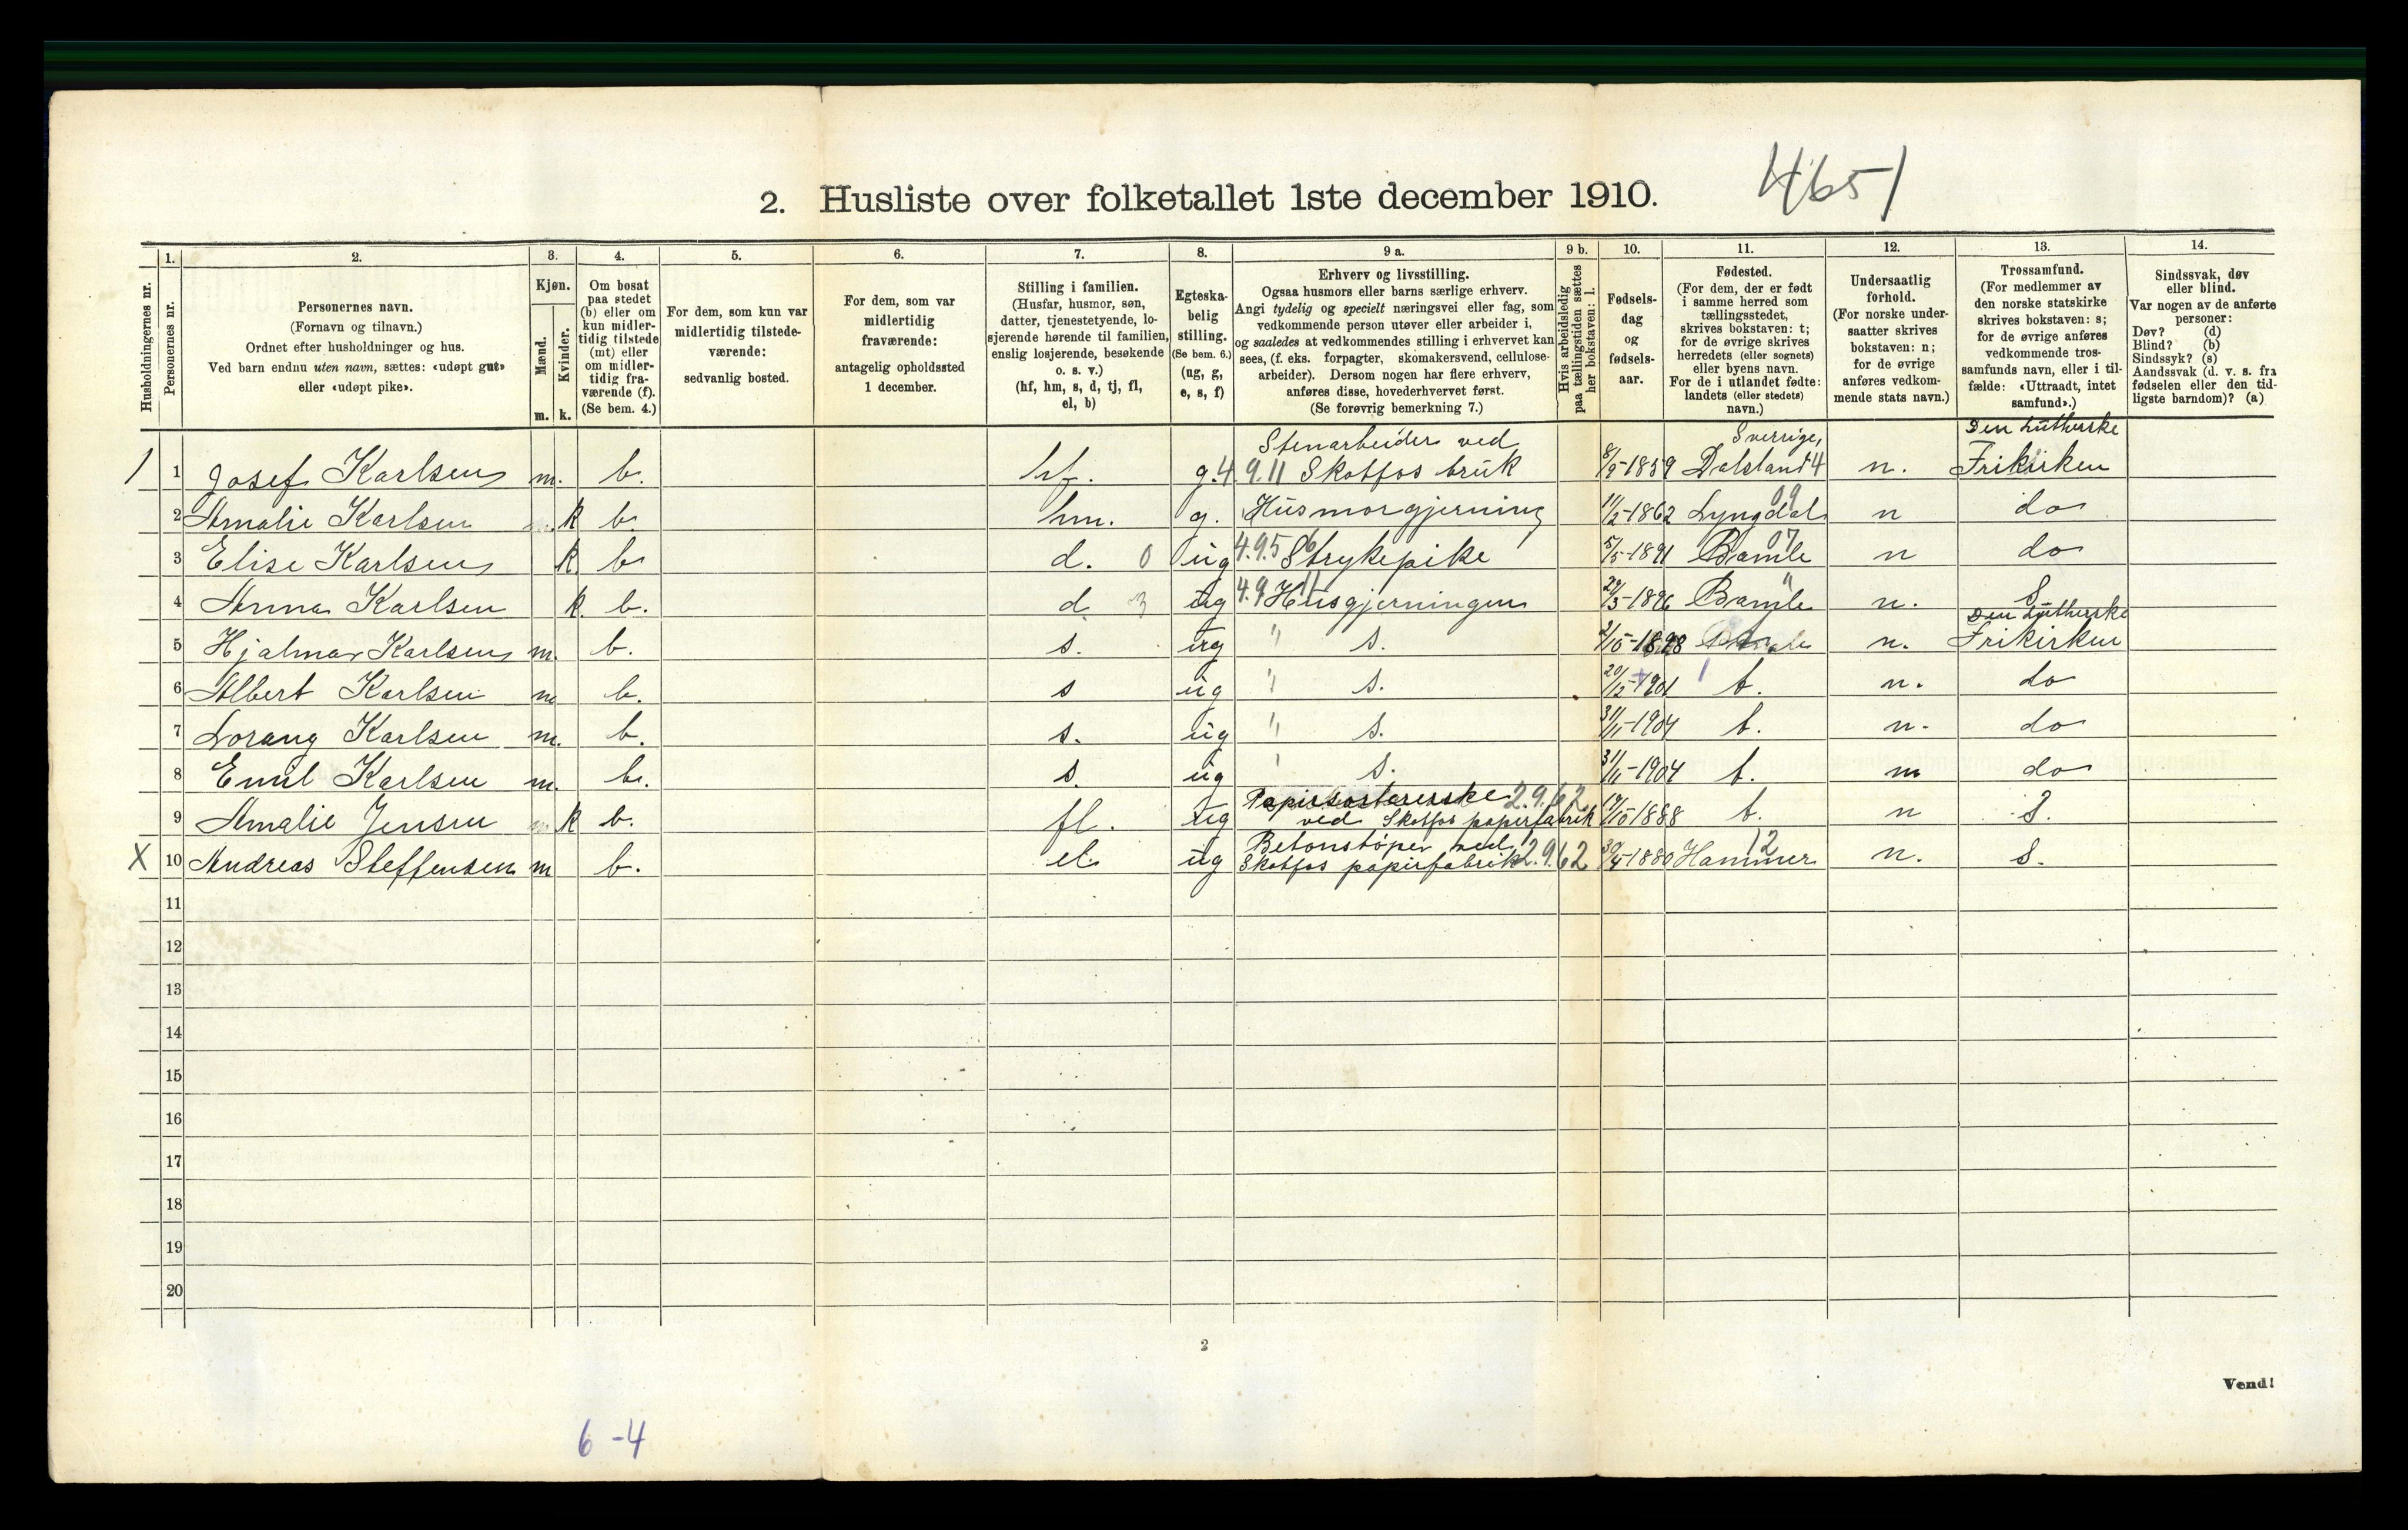 4651
2. Husliste over folketallet 1ste december 1910.
Husholdningernes nr.
1.
Personernes nr.
2.
Personernes navn.
(Fornavn og tilnavn.)
Ordnet efter husholdninger og hus.
Ved barn endnu uten navn, sættes: «udøpt gut»
eller «udøpt pike».
3.
Kjøn.
Mænd.
Kvinder.
m. k.
4.
Om bosat
paa stedet
(b) eller om
kun midler-
tidig tilstede
(mt) eller
om midler-
tidig fra-
værende (f).
(Se bem. 4.)
5.
For dem, som kun var
midlertidig tilstede-
værende:
sedvanlig bosted.
6.
For dem, som var
midlertidig
fraværende:
antagelig opholdssted
1 december.
7.
Stilling i familien.
(Husfar, husmor, søn,
datter, tjenestetyende, lo-
sjerende hørende til familien,
enslig losjerende, besøkende
o. s. v.)
(hf, hm, s, d, tj, fl,
el, b)
8.
Egteska-
belig
stilling.
(Se bem. 6.)
(ug, g,
e, s, f)
9 a.
Erhverv og livsstilling.
Ogsaa husmors eller barns særlige erhverv.
Angi tydelig og specielt næringsvei eller fag, som
vedkommende person utøver eller arbeider i,
og saaledes at vedkommendes stilling i erhvervet kan
sees, (f. eks. forpagter, skomakersvend, cellulose-
arbeider). Dersom nogen har flere erhverv,
anføres disse, hovederhvervet først.
(Se forøvrig bemerkning 7.)
9 b.
Hvis arbeidsledig
paa tællingstiden sættes
her bokstaven: l.
10.
Fødsels-
dag
og
fødsels-
aar.
11.
Fødested.
(For dem, der er født
i samme herred som
tællingsstedet,
skrives bokstaven: t;
for de øvrige skrives
herredets (eller sognets)
eller byens navn.
For de i utlandet fødte:
landets (eller stedets)
navn.)
12.
Undersaatlig
forhold.
(For norske under-
saatter skrives
bokstaven: n;
for de øvrige
anføres vedkom-
mende stats navn.)
13.
Trossamfund.
(For medlemmer av
den norske statskirke
skrives bokstaven: s;
for de øvrige anføres
vedkommende tros-
samfunds navn, eller i til-
fælde: «Uttraadt, intet
samfund».)
14.
Sindssvak, døv
eller blind.
Var nogen av de anførte
personer:
Døv? (d)
Blind? (b)
Sindssyk? (s)
Aandssvak (d. v. s. fra
fødselen eller den tid-
ligste barndom)? (a)
Stenarbeider ved Sverrige, Den Lutherske
1 1 Josef Karlsen m. b. hf. g. 4.9.11 Skotfos bruk 8/9-1859 Dalsland 4 n. Frikirken
2 Amalie Karlsen k b. hm. g. Husmorgjerning 11/2-1862 Lyngdal 09 n do
3 Elise Karlsen k b d. 0 ug 4.9.5 6 Strykepike 5/5-1891 Bamle 07 n do
4 Anna Karlsen k. b. d 3 ug 4.9 11 Husgjerningen 29/3-1896 Bamle " n. S
Den Lutherske
5 Hjalmar Karlsen m. b. s. ug " s. 2/10-1898 n. Frikirken
6 Albert Karlsen m b. s ug " s. 20/12-1901 t. n. do
7 Lorang Karlsen m. b. s. ug " s. 31/11-1904 t. n. do
8 Emil Karlsen m. b. s. ug " s. 31/11-1904 t. n do
9 Amalie Jensen k b. fl. ug Papirsortererske 2.9.62
ved Skotfos paperfabrik 17/10-1888 t. n S.
X 10 Andreas Steffensen m b. el. ug Betonstøper ved
Skotfos papirfabrik 2.9.62 30/4-1880 Hammer 12 n. S.
11
12
13
14
15
16
17
18
19
20
2
Vend!
6-4